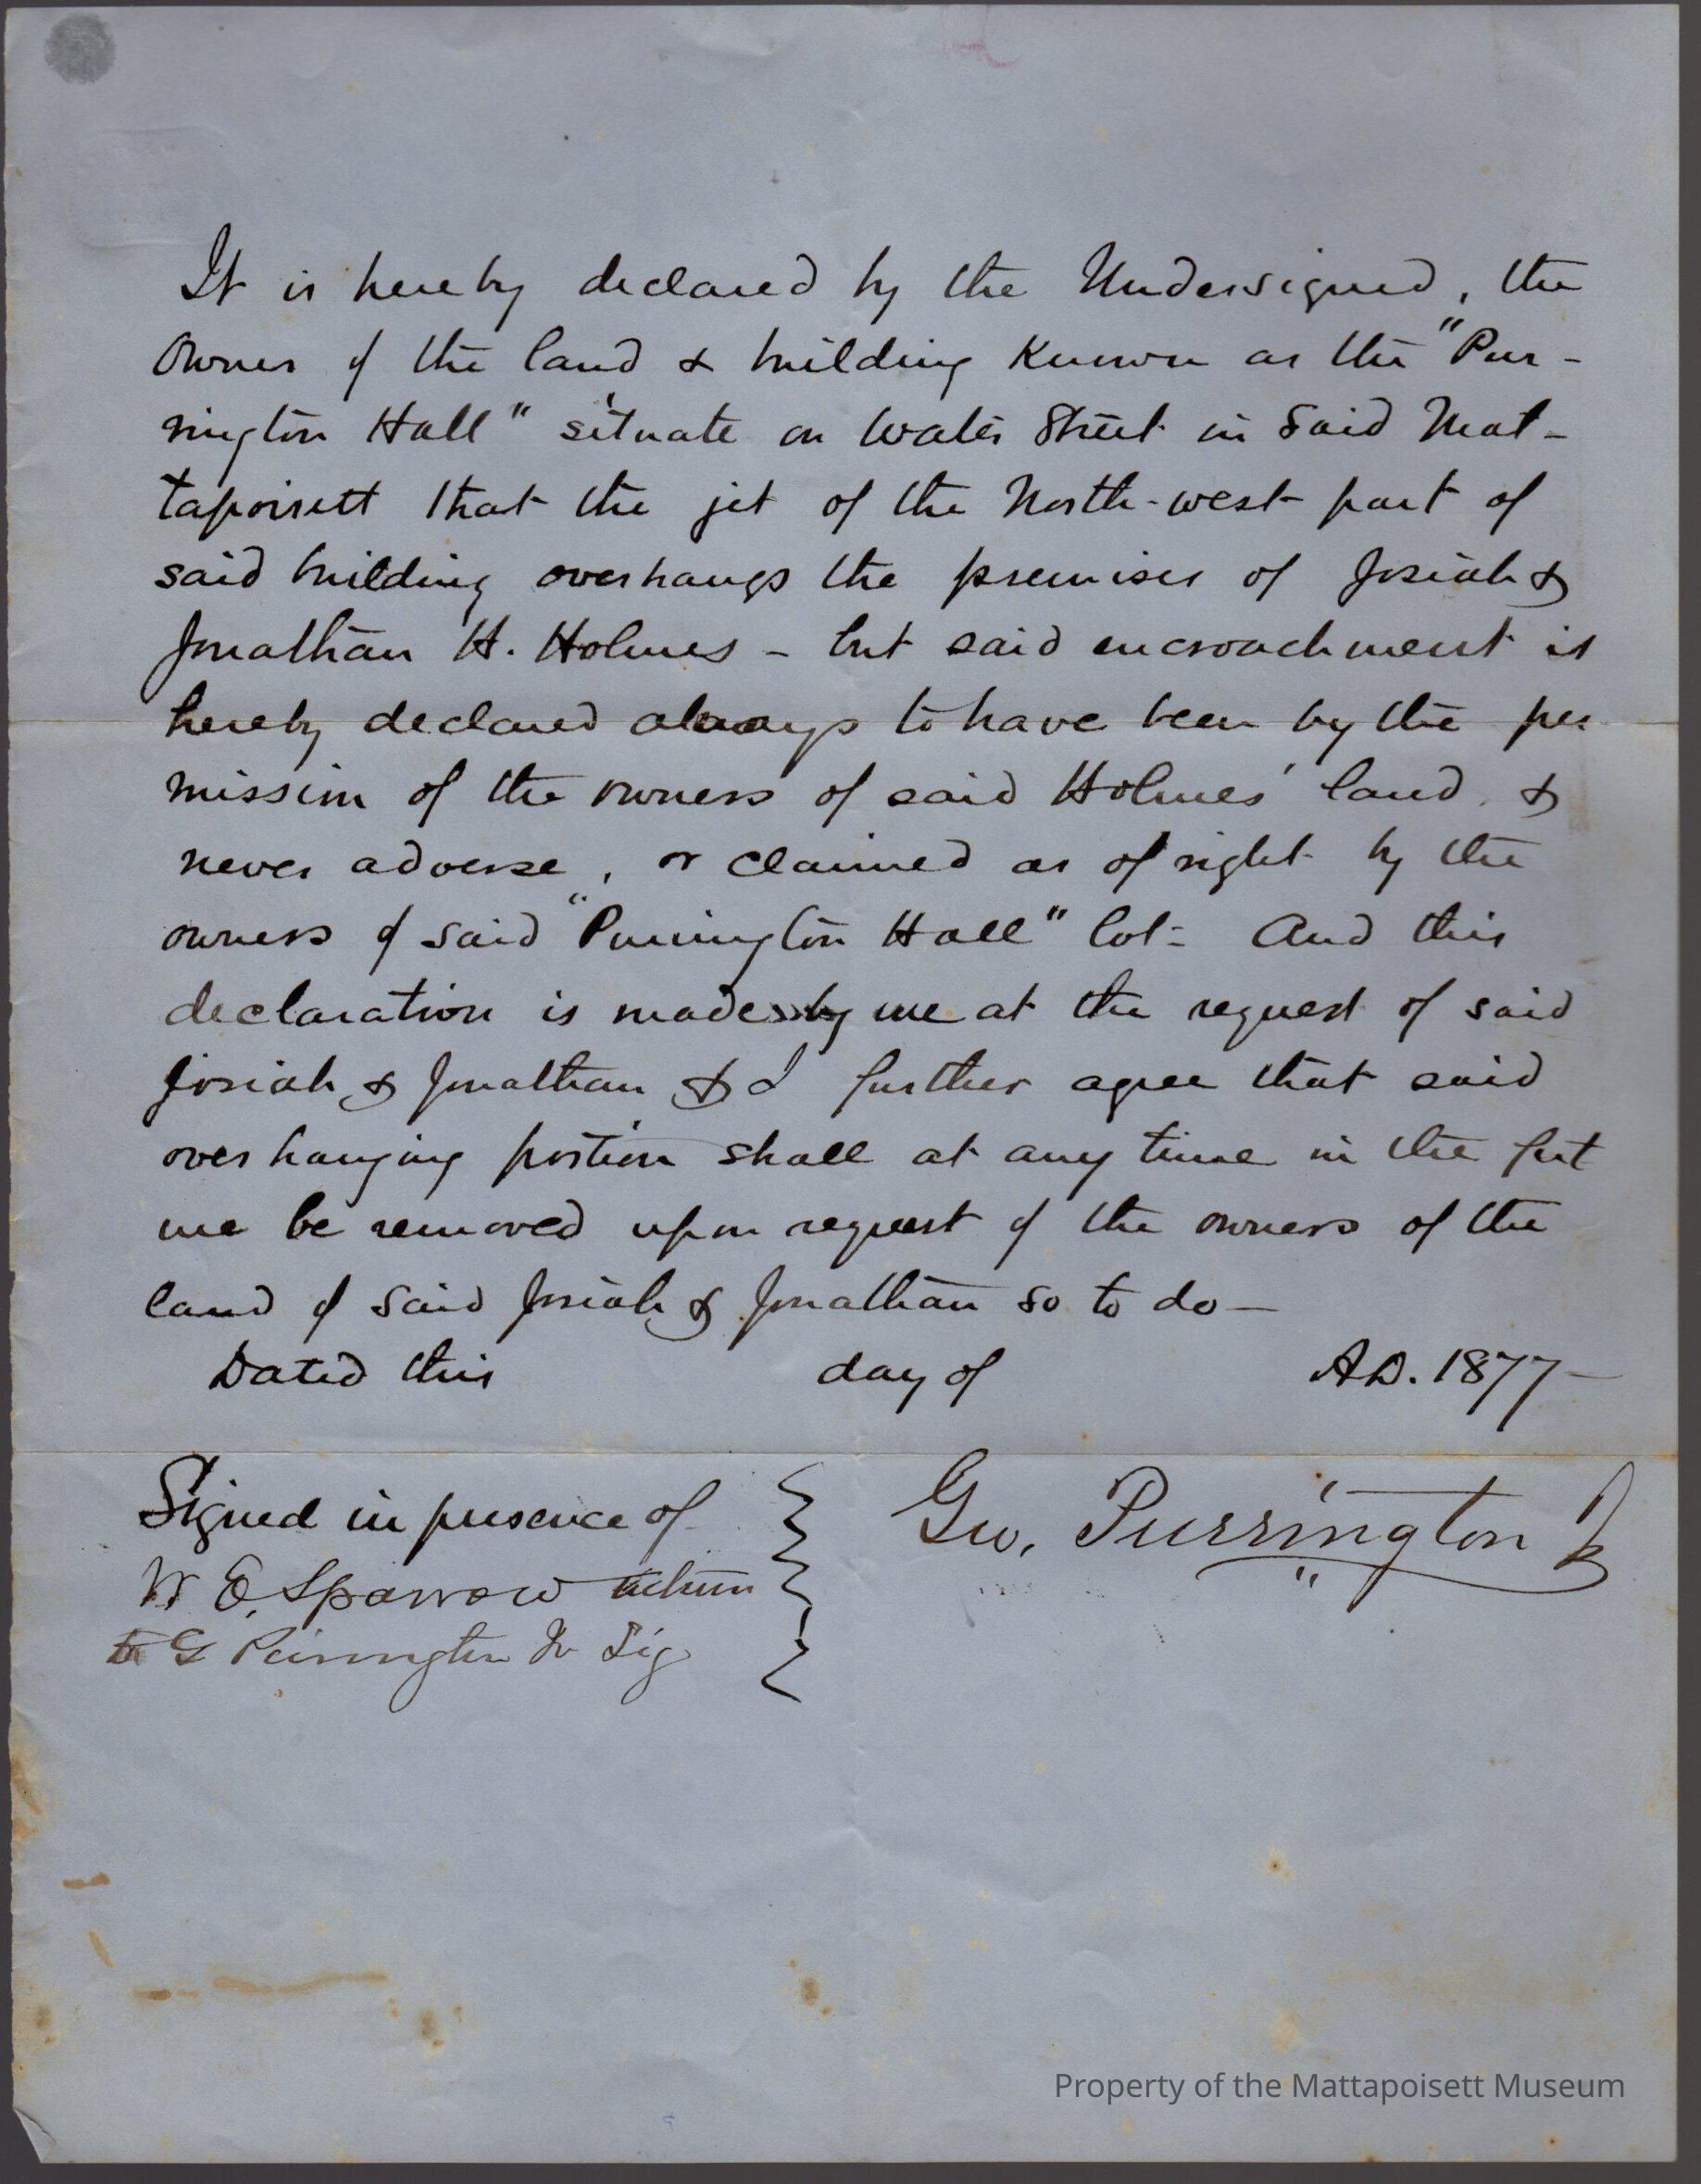 It is hereby declared by the Undersigned, the
Owner of the land & building Known as the "Pur-
rington Hall" situate on Water Street in Said Mat-
tapoisett that the jet of the North-west part of
said building overhangs the premises of Josiah &
Jonathan H. Holmes - but said encroachment is
hereby declared always to have been by the per
mission of the owners of said Holmes' land &
never adverse, or claimed as of right by the
owners of said "Purrington Hall" lot- And this
declaration is made by me at the request of said
Josiah & Jonathan & I further agree that said
over hanging portion shall at any time in the fut
ure be removed upon request of the owners of the
land of Said Josiah & Jonathan so to do—
Dated this day of A.D. 1877—
Signed in presence of
Geo. Purrington Jr
W E. Sparrow witness
to G Purrington Jr Sig
Property of the Mattapoisett Museum